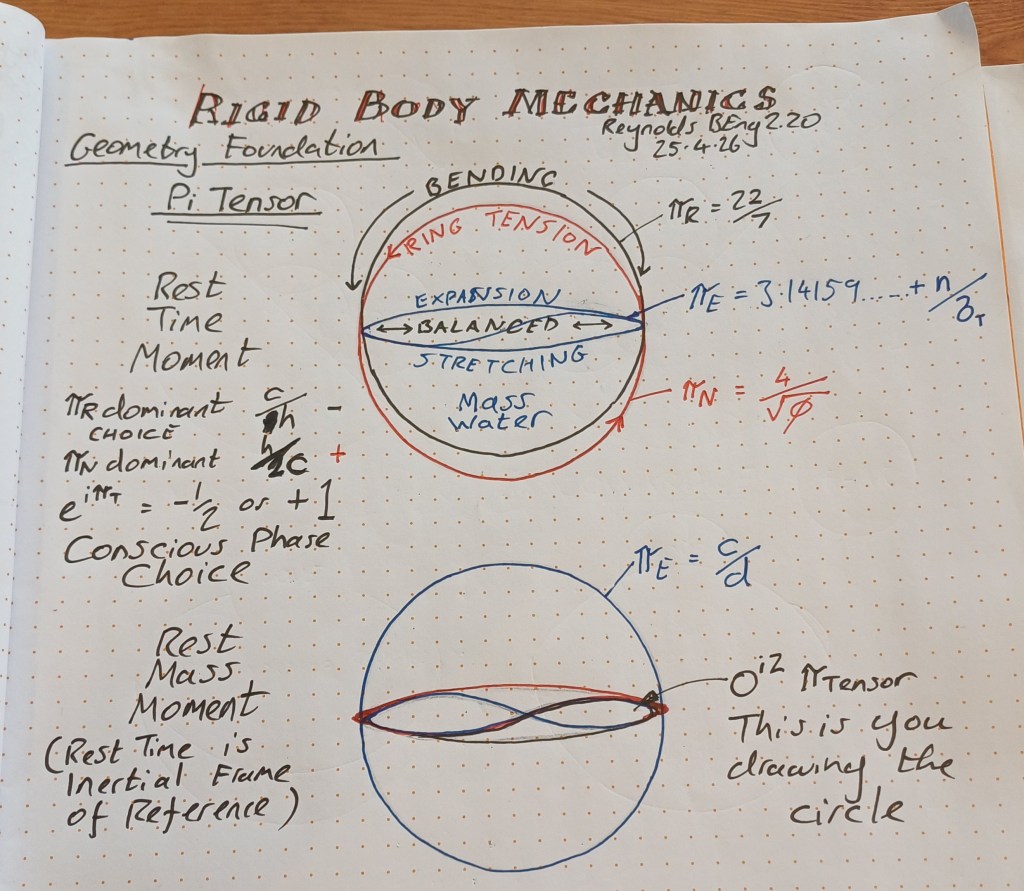 RIGID BODY MECHANICS
Reynolds BEng 2.20
25.4.26
Geometry Foundation
Pi Tensor
BENDING
RING TENSION
πR = 22/7
EXPANSION
BALANCED
STRETCHING
Mass
Water
πE = 3.14159..... + n/
πN = 4/√φ
Rest
Time
Moment
πR dominant c/h -
CHOICE
πN dominant h/2c +
e^iπT = -1/2 or +1
Conscious Phase
Choice
πE = c/d
Rest
Mass
Moment
(Rest Time is
Inertial Frame
of Reference)
O^i2 πTensor
This is you
drawing the
circle